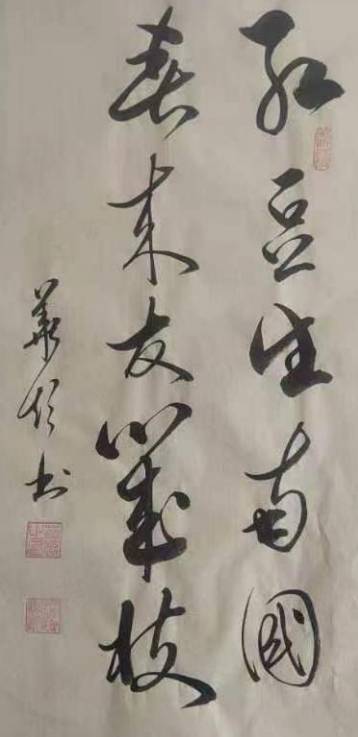 红豆生南國
春来发幾枝
书